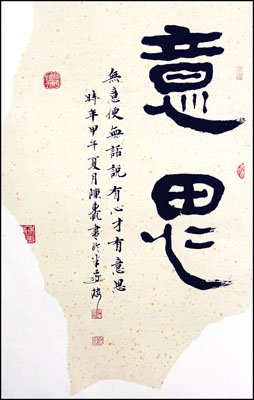 意思
無意便無話說有心才有意思
時年甲午夏月陳書於半樓